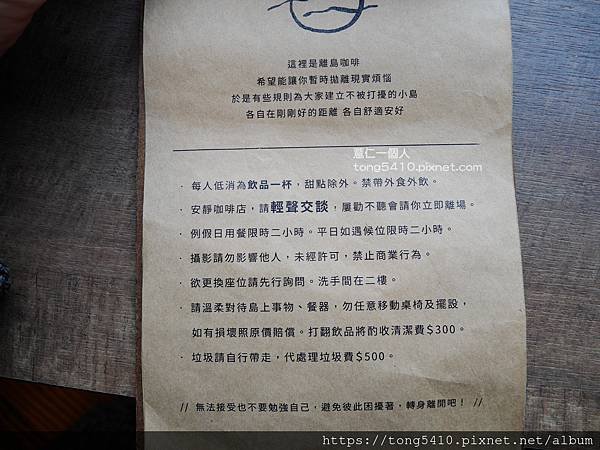 這裡是離島咖啡
希望能讓你暫時拋離現實煩惱
於是有些規則為大家建立不被打擾的小島
各自在剛剛好的距離 各自舒適安好
薏仁一個人
tong5410.pixnet.com
· 每人低消為飲品一杯，甜點除外。禁帶外食外飲。
· 安靜咖啡店，請輕聲交談，屢勸不聽會請你立即離場。
· 例假日用餐限時二小時。平日如遇候位限時二小時。
· 攝影請勿影響他人，未經許可，禁止商業行為。
· 欲更換座位請先行詢問。洗手間在二樓。
· 請溫柔對待島上事物、餐器，勿任意移動桌椅及擺設，
如有損壞照原價賠償。打翻飲品將酌收清潔費$300。
· 垃圾請自行帶走，代處理垃圾費$500。
// 無法接受也不要勉強自己，避免彼此困擾著，轉身離開吧！ //
https://tong5410.pixnet.net/album